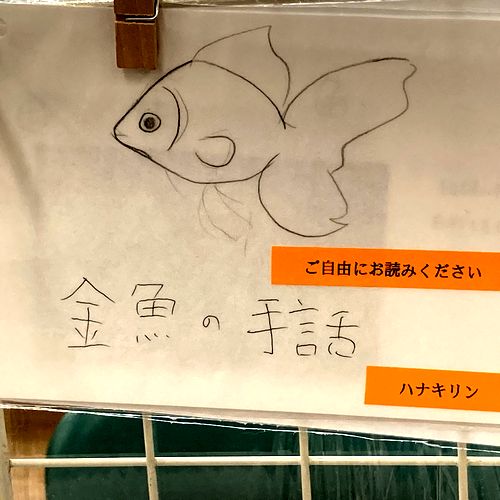 ご自由にお読みください
金魚の手話
ハナキリン